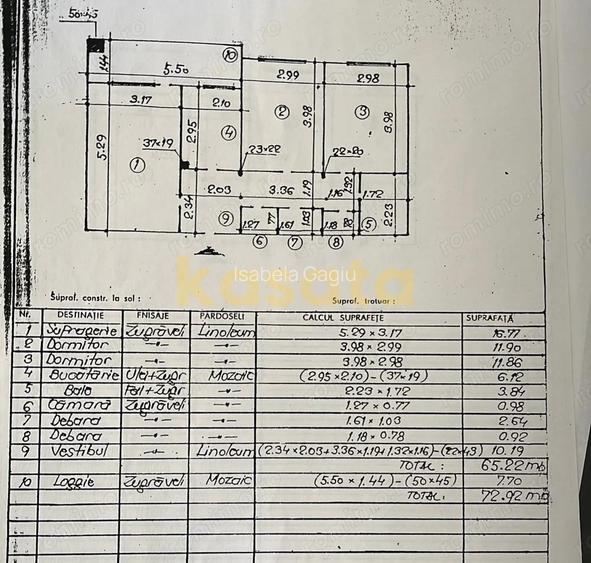 50×45
1.44
5.50
10
2.99
2.98
3.17
2.10
2
3
5.29
2.95
4
3.98
3.98
37×19
23×22
22×20
1
2.03
3.36
1.19
1.16
1.32
1.72
2.34
9
1.27
77
1.61
1.03
1.18
82
5
2.23
6
7
8
Isabela Gagiu
kasata
Supraf. constr. la sol :
Supraf. trotuar :
Nr. DESTINAȚIE FNISAJE PARDOSELI CALCUL SUPRAFEȚE SUPRAFAȚĂ
1 Sufragerie Zugrăveli Linoleum 5.29 × 3.17 16.77
2 Dormitor —〃— —〃— 3.98 × 2.99 11.90
3 Dormitor —〃— —〃— 3.98 × 2.98 11.86
4 Bucătărie Ulei+Zugr Mozaic (2.95×2.10)-(37×19) 6.12
5 Baie Fai+Zugr —〃— 2.23 × 1.72 3.84
6 Cămara Zugrăveli —〃— 1.27 × 0.77 0.98
7 Debara —〃— —〃— 1.61 × 1.03 2.64
8 Debara —〃— —〃— 1.18 × 0.78 0.92
9 Vestibul —〃— Linoleum (2.34×2.03+3.36×1.19+1.32×1.16)-(22×43) 10.19
TOTAL : 65.22 mp
10 Loggie Zugrăveli Mozaic (5.50 × 1.44)-(50×45) 7.70
TOTAL: 72.92 mp